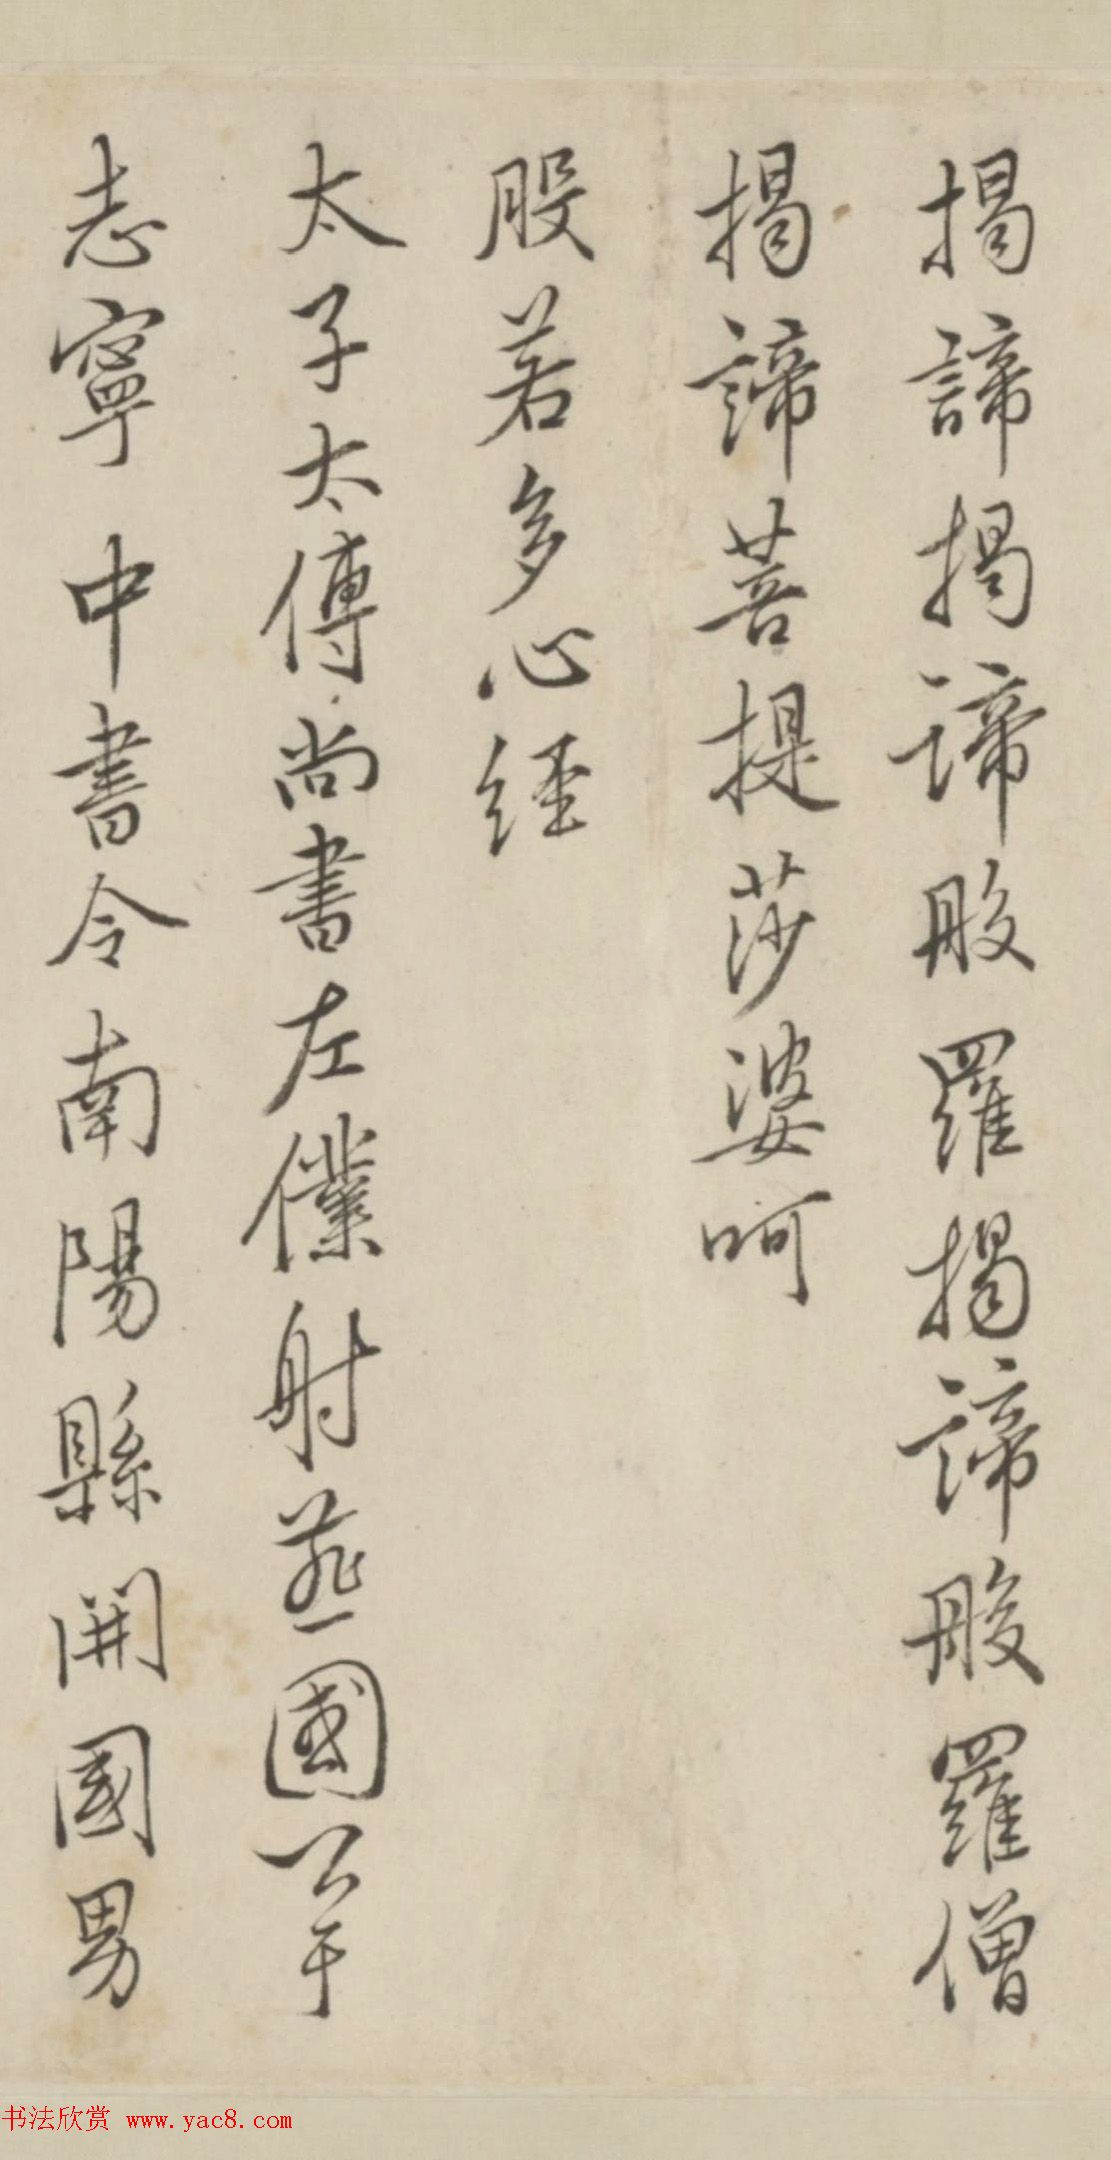 揭諦揭諦般羅揭諦般羅僧
揭諦菩提莎婆呵
般若多心經
太子太傅尚書左僕射燕國公于
志寧 中書令南陽縣開國男
书法欣赏 www.yac8.com